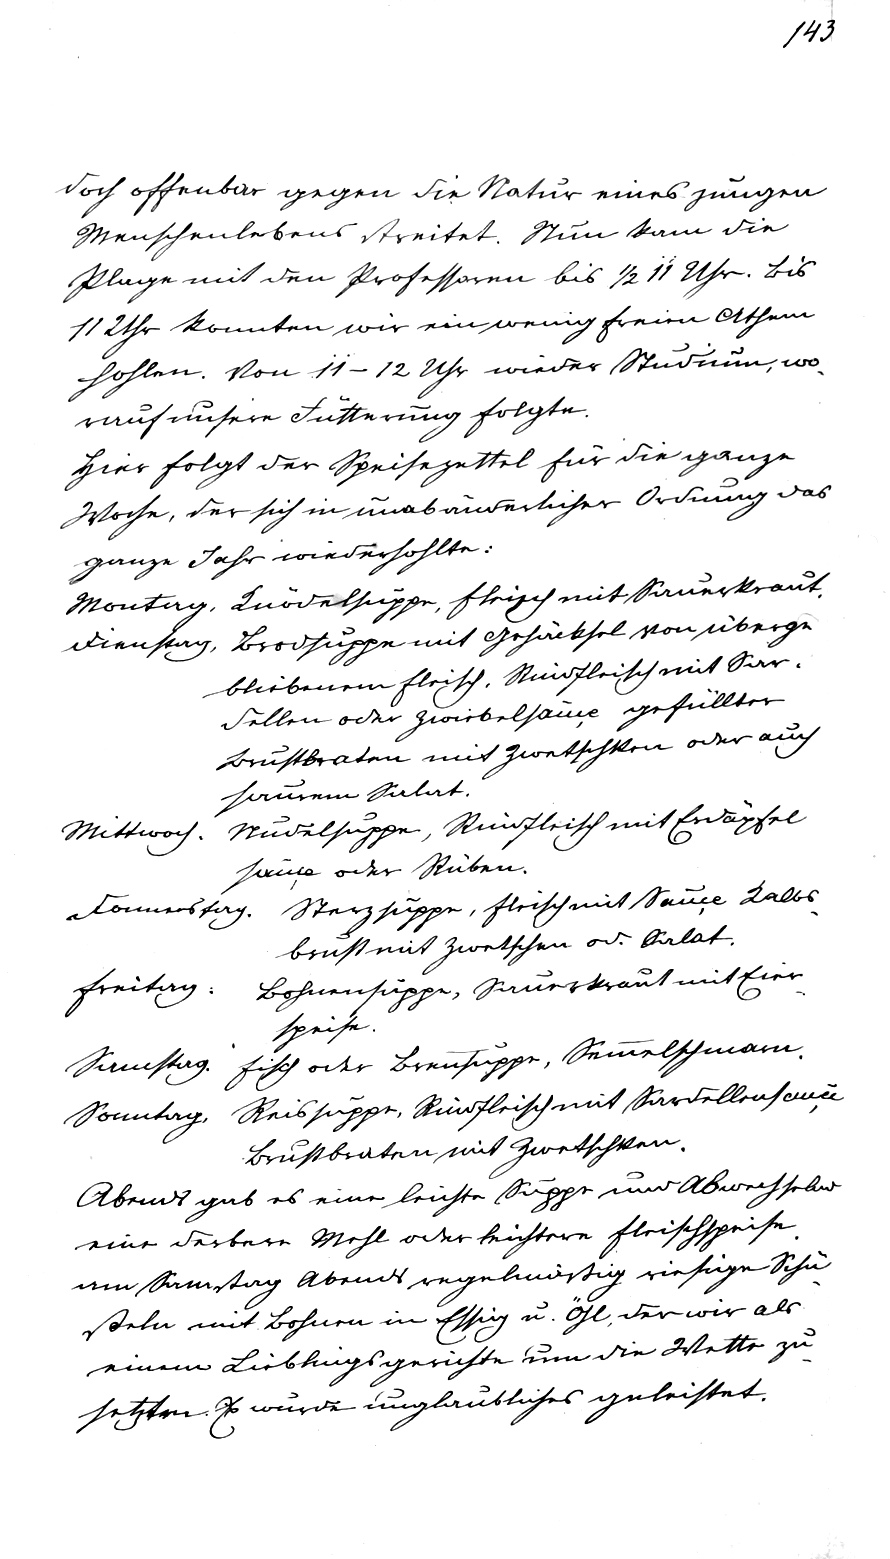 143
doch offenbar gegen die Natur eines jungen
Menschenlebens streitet. Nun kam die
Plage mit den Professoren bis ½ 11 Uhr. Bis
11 Uhr konnten wir ein wenig freien Athem
hohlen. Von 11 – 12 Uhr wieder Studium, wo-
rauf unsere Fütterung folgte.
Hier folgt der Speisezettel für die ganze
Woche, der sich in unabänderlicher Ordnung das
ganze Jahr wiederhohlte:
Montag, Knödelsuppe, Fleisch mit Sauerkraut.
Dienstag, Brodsuppe mit Gehäcksel von überge
bliebenem Fleisch, Rindfleisch mit Sar-
dellen oder Zwiebelsauçe gefüllter
Brustbraten mit Zwetschken oder auch
saurem Salat.
Mittwoch. Nudelsuppe, Rindfleisch mit Erdäpfel
sauçe oder Rüben.
Donnerstag. Sterzsuppe, Fleisch mit Sauçe Kalbs-
brust mit Zwetschen od. Salat.
Freitag: Bohnensuppe, Sauerkraut mit Eier-
speise.
Samstag. Fisch oder Brennsuppe, Sem̅elschmarn.
Sonntag, Reissuppe, Rindfleisch mit Sardellensauçe
Brustbraten mit Zwetschken.
Abends gab es eine leichte Suppe und Abwechselnd
eine derbere Mehl oder leichtere Fleischspeise.
am Samstag Abends regelmäßig riesige Schü-
sseln mit Bohnen in Essig u. Öhl, der wir als
einem Lieblingsgerichte um die Wette zu-
setzten. Es wurde unglaubliches geleistet.